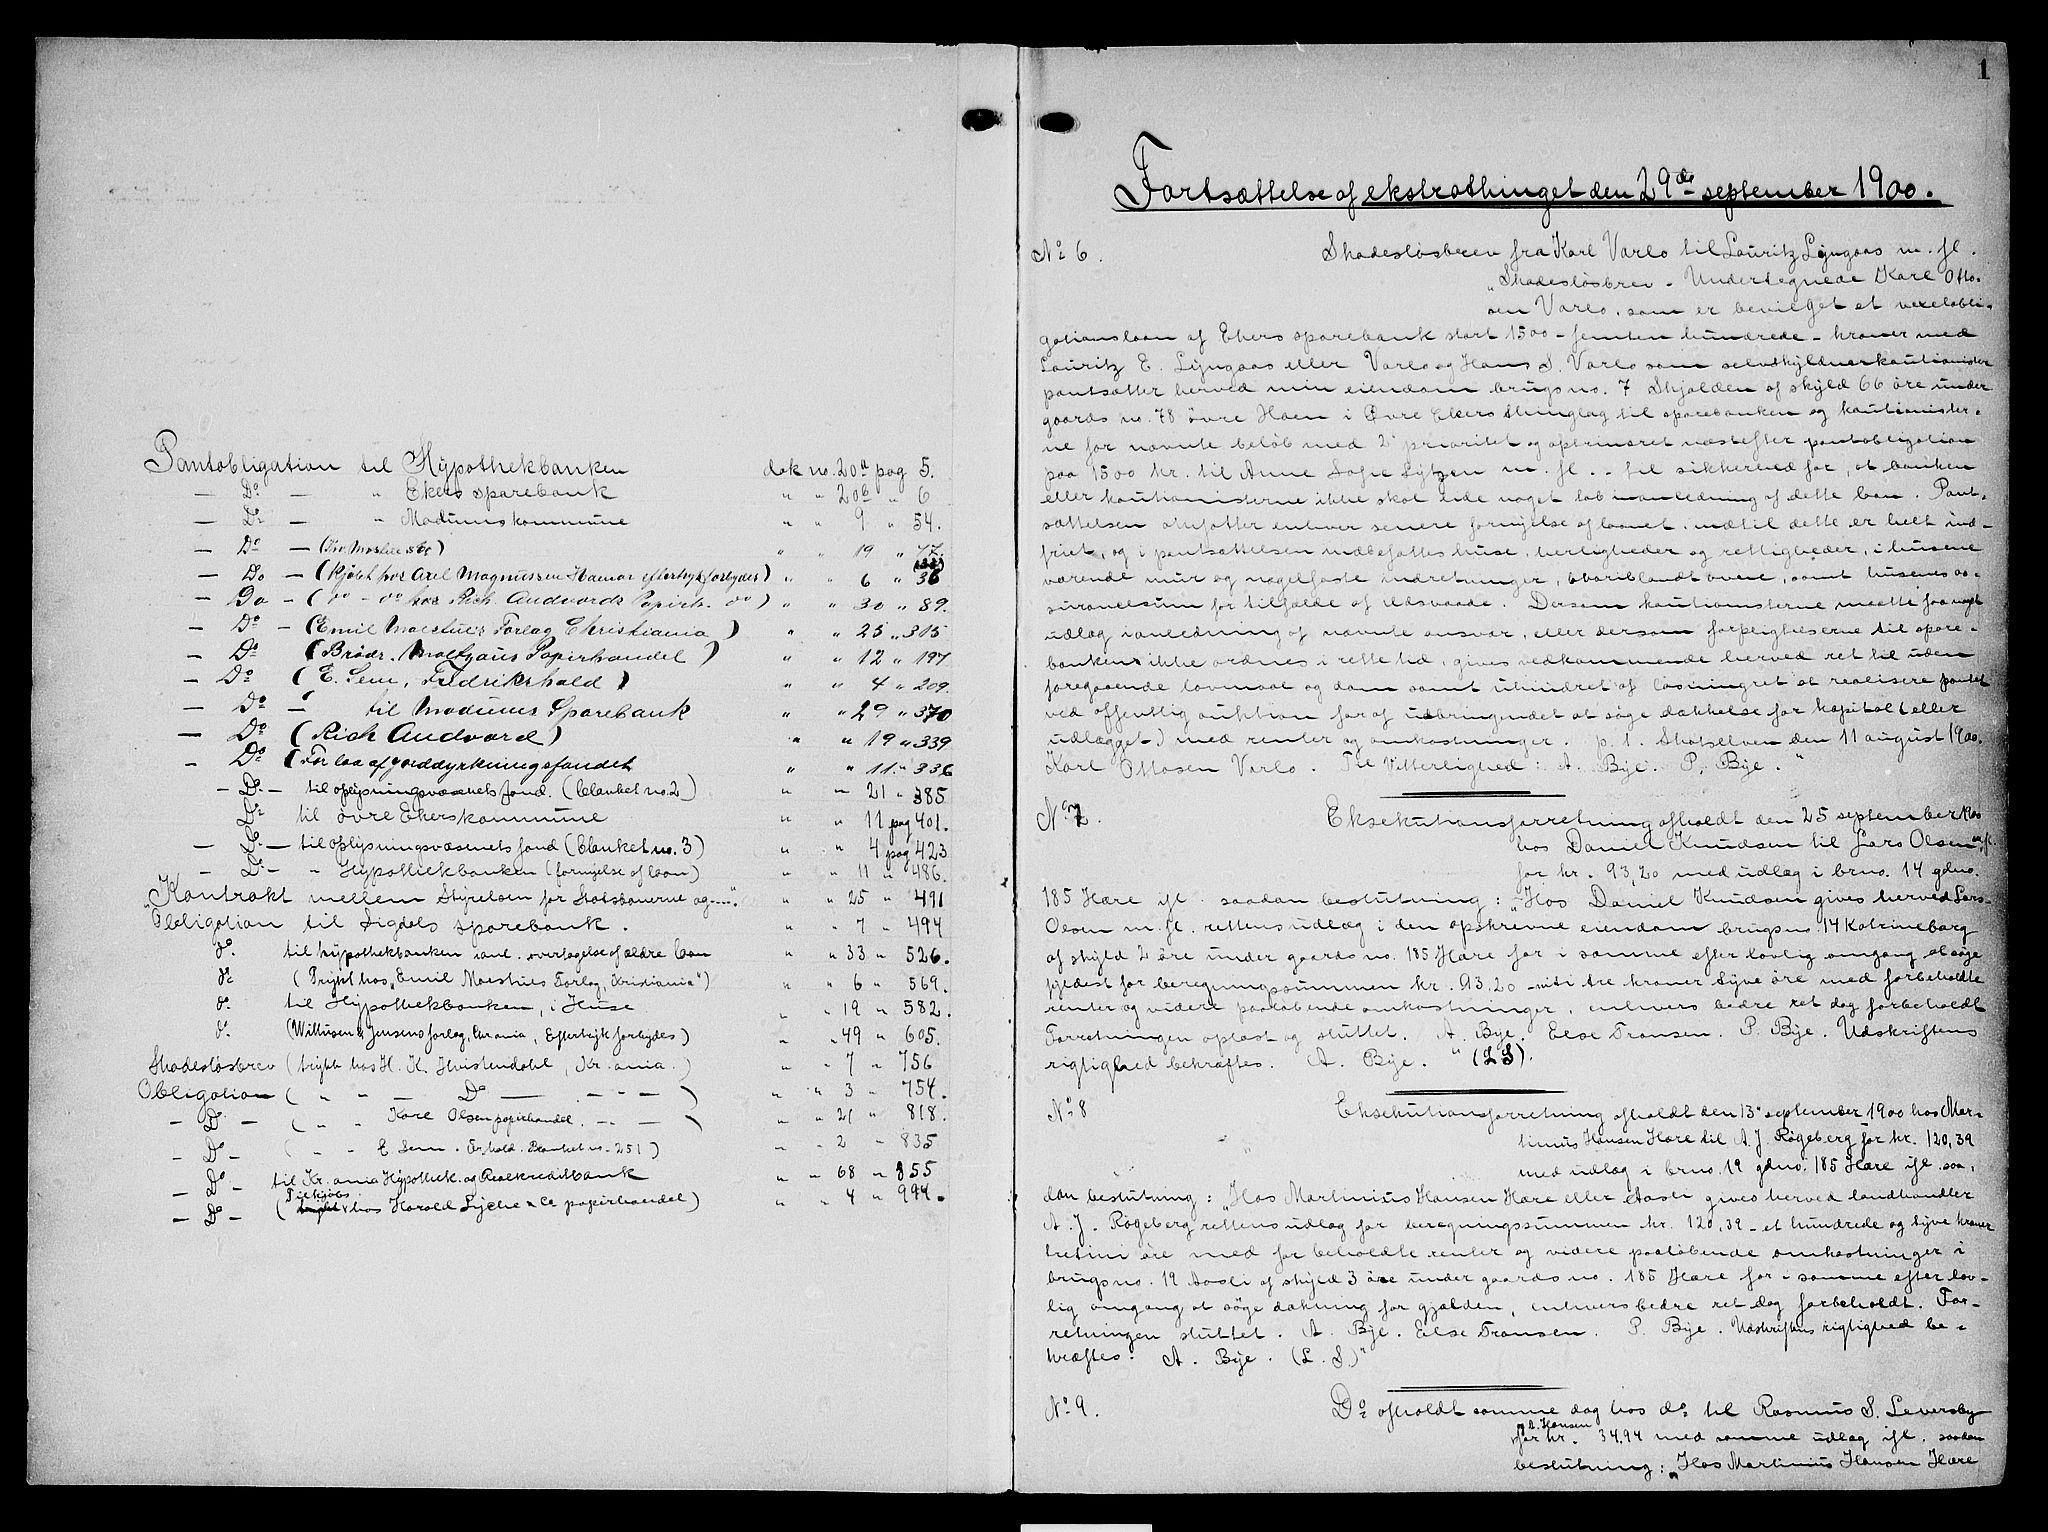 Pantobligation til Hypothekbanken dok no. 20a pag 5.
— Do — " Ekers sparebank " " 20b " 6
— Do — " Modums kommune " " 9 " 54.
— Do — " " 19 " 77.
— Do — (Kjøbt hos Axel Magnussen Hamar eftertryk forbydes) " " 6 " 36
— Do — ( do - do hos Rich. Andvords Papirh. do ) " " 30 " 89.
— Do — (Emil Moestues Forlag Christiania) " " 25 " 315
— Do (Brødr. Malthaus Papirhandel) " " 12 " 197
— Do (E. Sem, Fredrikshald) " " 4 " 209.
— Do — til Modums Sparebank " " 29 " 370
— Do (Rich Andvord) " " 19 " 339.
— Do (For laa af jorddyrkningsfondet " " 11 " 336
— Do — til oplysningsvæsenets fond. (blanket no. 2) " " 21 " 385
Do til øvre Ekers kommune " " 11 pag 401.
— Do — til oplysningsvæsenets fond (blanket no. 3) " " 4 pag 423
— Do — " Hypothekbanken (fornyelse af laan) " " 11 " 486.
"Kontrakt mellem Styrelsen for Statsbanerne og....." " " 25 " 491
Obligation til Sigdals sparebank. " " 7 " 494
do til hypothekbanken ianl. overtagelse af ældre laan " " 33 " 526.
do (Trykt hos "Emil Moestues Forlag, Kristiania") " " 6 " 569.
do til Hypothekbanken, i Huse " " 19 " 582.
do (Wittusen & Jensens forlag, Chr.ania, Eftertryk forbydes) " " 49 " 605.
Skadesløsbrev (trykt hos H. K. Huistendahl, Kr.ania.) " " 7 " 756
Obligation ( " " — Do — " — " ) " " 3 " 754.
— Do — ( " " Karl Olsen papirhandel. — " — ) " " 21 " 818.
— Do — ( " " E Sem. Fr.hald. Blanket no. 251) " " 2 " 835
— Do — til Kr.ania Hypothek. og Realkreditbank " " 68 " 855
— Do — ( hos Harald Lyche & Co papirhandel) " " 4 " 994.
1
Fortsættelse af ekstrathinget den 29de september 1900.
No 6. Skadesløsbrev fra Karl Varlo til Lauritz Lyngaas m. fl.
"Skadesløsbrev. Undertegnede Karl Otto-
sen Varlo, som er bevilget et vexelobli-
gationslaan af Ekers sparebank stort 1500 – femten hundrede – kroner med
Lauritz E. Lyngaas eller Varlo og Hans S. Varlo som selvskyldnerkautionister
pantsætter herved min eiendom brugsno. 7 Skjolden af skyld 66 øre under
gaards no. 78 øvre Hoen i Øvre Ekers thinglag til sparebanken og kautionister-
ne for nævnte beløb med 2' prioritet og optrinsret næstefter pantobligation
paa 1500 kr. til Anne Sofie Lytzen m. fl. .. til sikkerhed for, at banken
eller kautionisterne ikke skal lide noget tab i anledning af dette laan. Pant-
sættelsen omfatter enhver senere fornyelse af laanet, indtil dette er helt ind-
friet, og i pantsættelsen indbefattes huse, herligheder og rettigheder, i husene
værende mur og nagelfaste indretninger, hvoriblandt ovne, samt husenes as-
surancesum for tilfælde af ildsvaade. Dersom kautionisterne maatte faa noget
udlæg i anledning af nævnte ansvar, eller dersom forpligtelserne til spare-
banken ikke ordnes i rette tid, gives vedkommende herved ret til uden
foregaaende lovmaal og dom samt uhindret af løsningsret at realisere pantet
ved offentlig auktion for af udbringendet at søge dækkelse for kapital (eller
udlægget) med renter og omkostninger. p. t. Skotselven den 11 august 1900.
Karl Ottosen Varlo. Til Vitterlighed: A. Bye. P. Bye."
No 7. Eksekutionsforretning afholdt den 25 september 1900
hos Daniel Knudsen til Lars Olsen m. fl.
for kr. 93,20 med udlæg i brno. 14 gdno.
185 Hære ifl. saadan beslutning: "Hos Daniel Knudsen gives herved Lars
Olsen m. fl. rettens udlæg i den opskrevne eiendom brugsno. 14 Katrineborg
af skyld 2 øre under gaards no. 185 Hære for i samme efter lovlig omgang at søge
fyldest for beregningssummen kr. 93.20 – niti tre kroner tyve øre med forbeholdte
renter og videre paaløbende omkostninger, enhvers bedre ret dog forbeholdt
Forretningen oplæst og sluttet. A. Bye. Else Fransen. P. Bye. Udskriftens
rigtighed bekræftes. A. Bye. " (L S).
No 8 Eksekutionsforretning afholdt den 13' september 1900 hos Mar-
tinius Hansen Hære til A. J. Røgeberg for kr. 120,39
med udlæg i brno. 19 gdno. 185 Hære ifl. saa-
dan beslutning: "Hos Martinius Hansen Hære eller Aasli gives herved landhandler
A. J. Røgeberg rettens udlæg for beregningssummen kr. 120,39 – et hundrede og tyve kroner
tretini øre med forbeholdte renter og videre paaløbende omkostninger i
brugsno. 19 Aasli af skyld 3 øre under gaards no. 185 Hære for i samme efter lov-
lig omgang at søge dækning for gjælden, enhvers bedre ret dog forbeholdt. For-
retningen sluttet. A. Bye. Else Fransen. P. Bye. Udskriftens rigtighed be-
kræftes. A. Bye. (L. S.)"
No 9. Do afholdt samme dag hos do til Rasmus S. Leversby
Hansen
for kr. 34.94 med samme udlæg ifl. saadan
beslutning: "Hos Martinius Hansen Hære